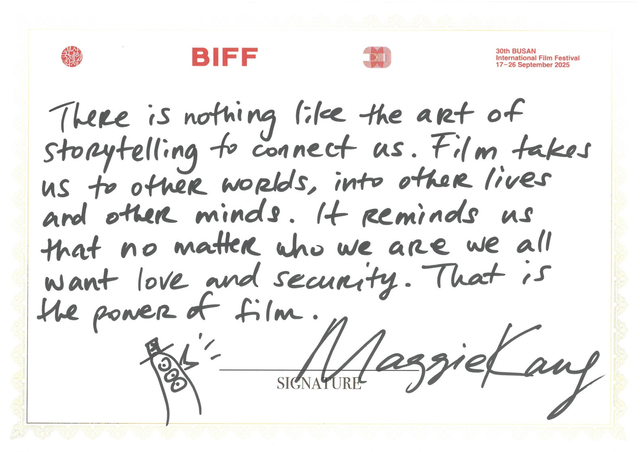 BIFF
30
30th BUSAN
International Film Festival
17–26 September 2025
There is nothing like the art of
storytelling to connect us. Film takes
us to other worlds, into other lives
and other minds. It reminds us
that no matter who we are we all
want love and security. That is
the power of film.
Maggie Kang
SIGNATURE